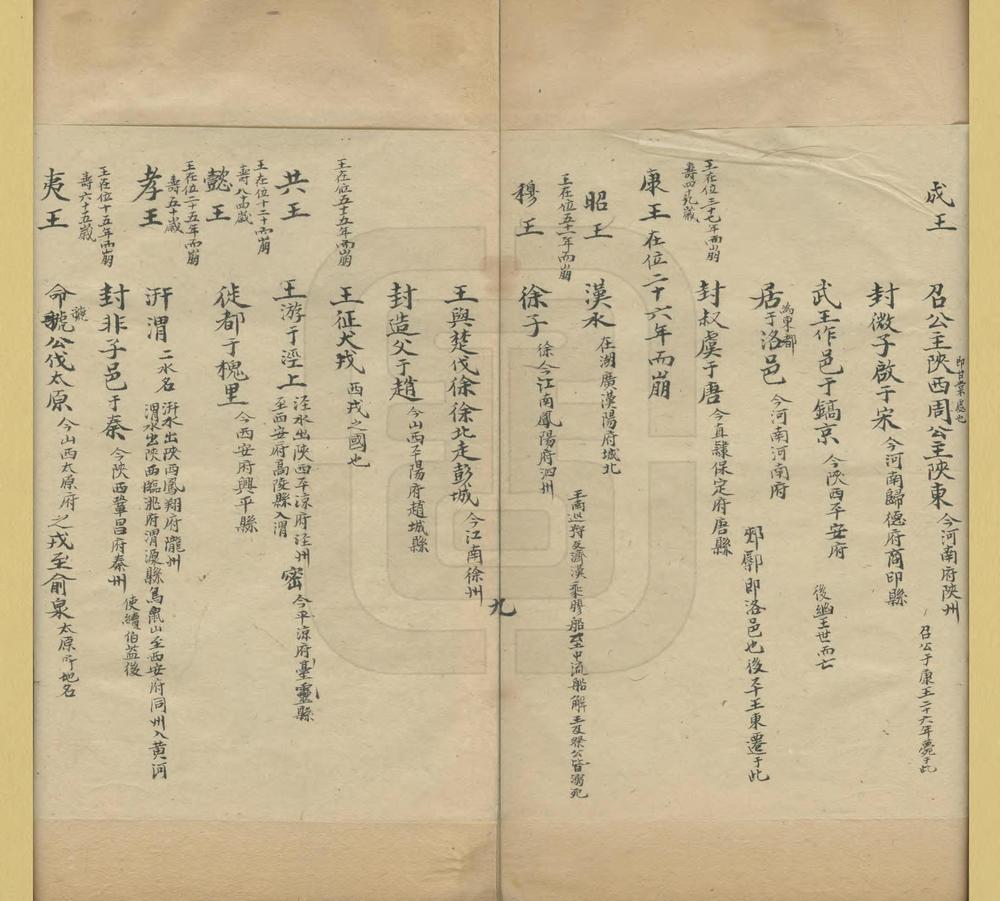 成王
召公主陝西周公主陝東 今河南府陝州
即甘棠處也
召公于康王二十六年薨于此
封微子啟于宋 今河南歸德府商印縣
武王作邑于鎬京 今陝西平安府 後幽王世而亡
居于洛邑 今河南河南府
為東都
郟鄏即洛邑也後平王東遷于此
王在位三十七年而崩
壽四十
封叔虞于唐 今直隸保定府唐縣
康王 在位二十六年而崩
昭王 漢水 在湖廣漢陽府城北
王南巡狩反濟漢乘膠船至中流船解王及祭公皆溺死
王在位五十一年而崩
穆王 徐子 徐今江南鳳陽府泗州
王與楚伐徐徐北走彭城 今江南徐州
九
封造父于趙 今山西平陽府趙城縣
王征犬戎 西戎之國也
王在位五十五年而崩
共王 王游于涇上 涇水出陝西平涼府涇州
至西安府高陵縣入渭
密 今平涼府臺靈縣
王在位十二年而崩
壽八十四歲
懿王 徙都于槐里 今西安府興平縣
王在位二十五年而崩
壽五十歲
孝王 汧渭 二水名 汧水出陝西鳳翔府隴州
渭水出陝西臨洮府渭源縣鳥鼠山至西安府同州入黃河
封非子邑于秦 今陝西鞏昌府秦州 使續伯益後
王在位十五年而崩
壽六十五歲
夷王 命虢公伐太原 今山西太原府之戎至俞泉 太原府地名
虢